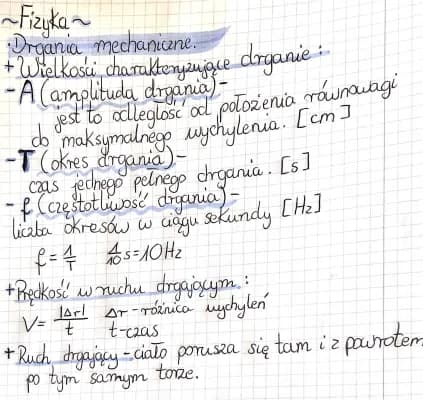 ~Fizyka~
·Drgania mechaniczne.
+ Wielkości charakteryzujące drganie:
- A (amplituda drgania)-
jest to odległość od położenia równowagi
do maksymalnego wychylenia. [cm]
- T (okres drgania)-
czas jednego pełnego drgania. [s]
- f (częstotliwość drgania)-
liczba okresów w ciągu sekundy [Hz]
f = 1/T   1/10 s = 10Hz
+ Prędkość w ruchu drgającym:
V = |Δr|/t   Δr - różnica wychyleń
t - czas
+ Ruch drgający - ciało porusza się tam i z powrotem
po tym samym torze.